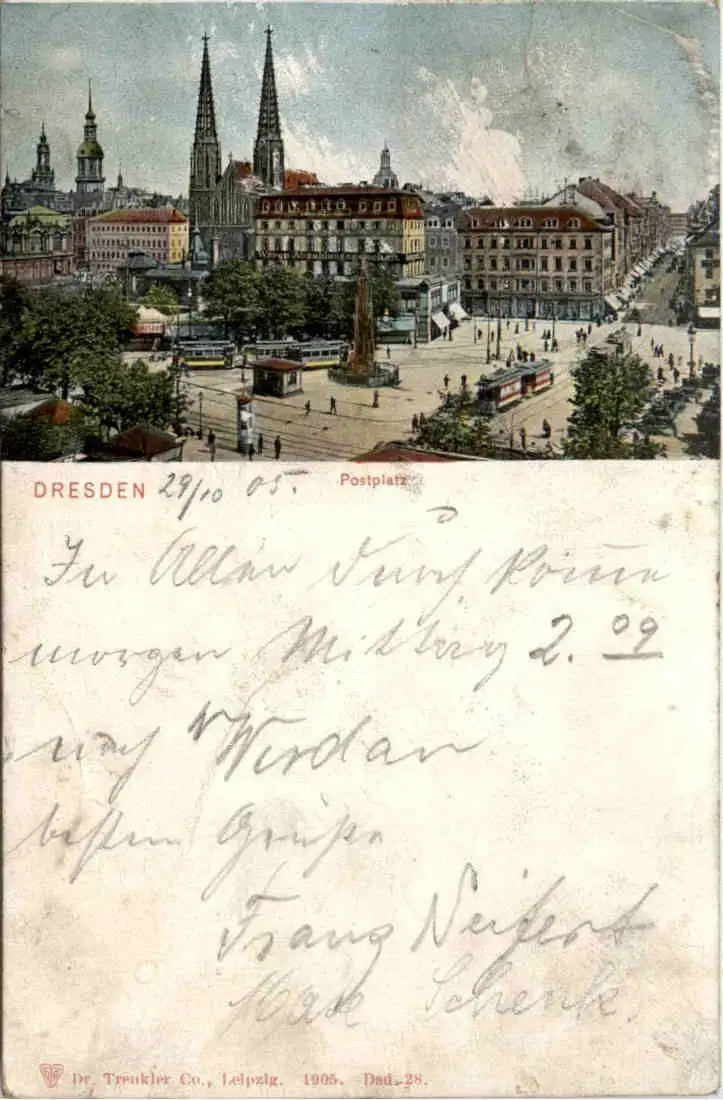 DRESDEN 29/10 05. Postplatz
In Allen durch komme
morgen Mittag 2.09
nach Werdau
besten Grüße
Franz Seifert
Max Schenk.
Dr. Trenkler Co., Leipzig. 1905. Dad. 28.